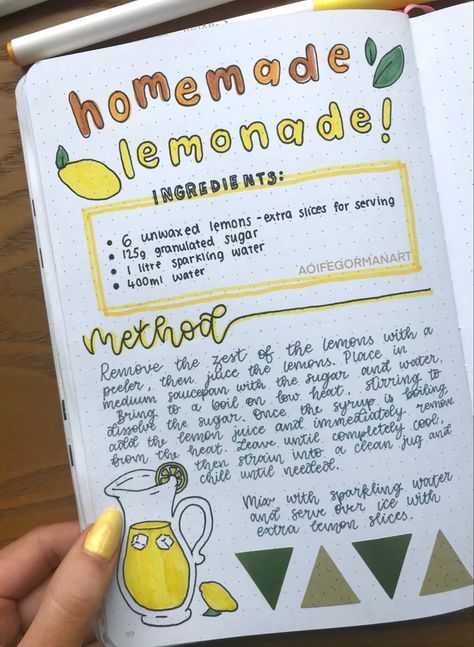 homemade
lemonade!
INGREDIENTS:
• 6 unwaxed lemons - extra slices for serving
• 125g granulated sugar
• 1 litre sparkling water
• 400ml water
AOIFEGORMANART
method
Remove the zest of the lemons with a
peeler, then juice the lemons. Place in
medium saucepan with the sugar and water.
Bring to a boil on low heat, stirring to
dissolve the sugar. Once the syrup is boiling,
add the lemon juice and immediately remove
from the heat. Leave until completely cool,
then strain into a clean jug and
chill until needed.
Mix with sparkling water
and serve over ice with
extra lemon slices.